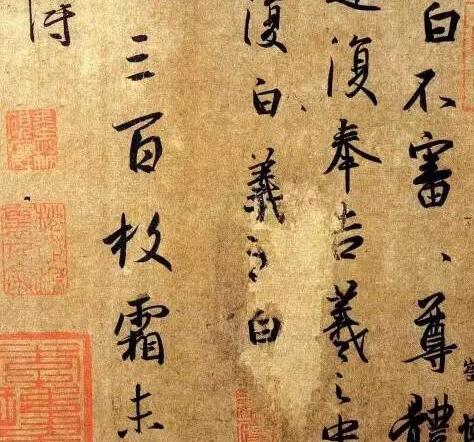 白不審、尊體
復奉告羲之中
復白羲之白
三百枚霜未
得